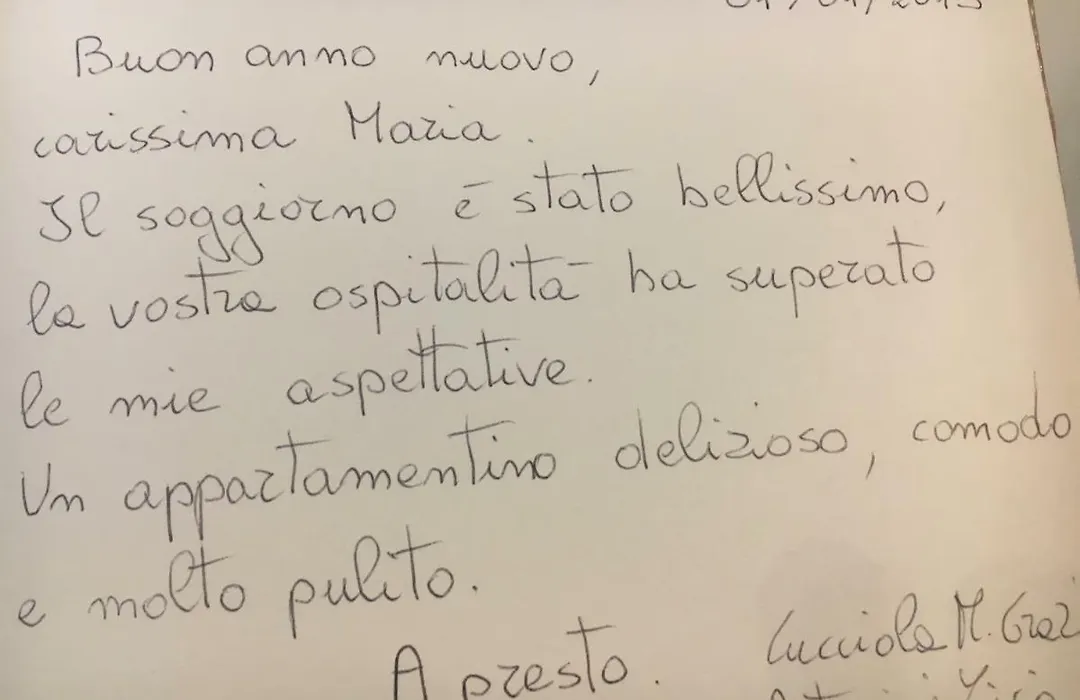 Buon anno nuovo,
carissima Maria.
Il soggiorno è stato bellissimo,
la vostra ospitalità ha superato
le mie aspettative.
Un appartamentino delizioso, comodo
e molto pulito.
A presto.
Lucciola M. Graz